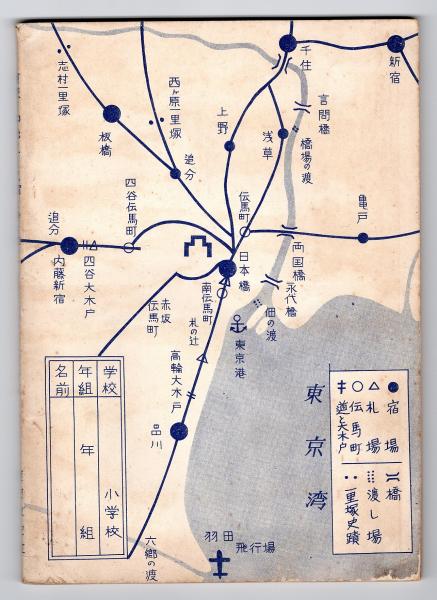 千住
新宿
志村一里塚
西ヶ原一里塚
言問橋
上野
浅草
橋場の渡
板橋
追分
四谷伝馬町
伝馬町
亀戸
追分
内藤新宿
四谷大木戸
両国橋
日本橋
永代橋
南伝馬町
佃の渡
赤坂伝馬町
札の辻
東京港
高輪大木戸
品川
六郷の渡
羽田飛行場
東京湾
宿場
札場
伝馬町
大木戸
橋
渡し場
一里塚史蹟
学校
小学校
年組
年
組
名前